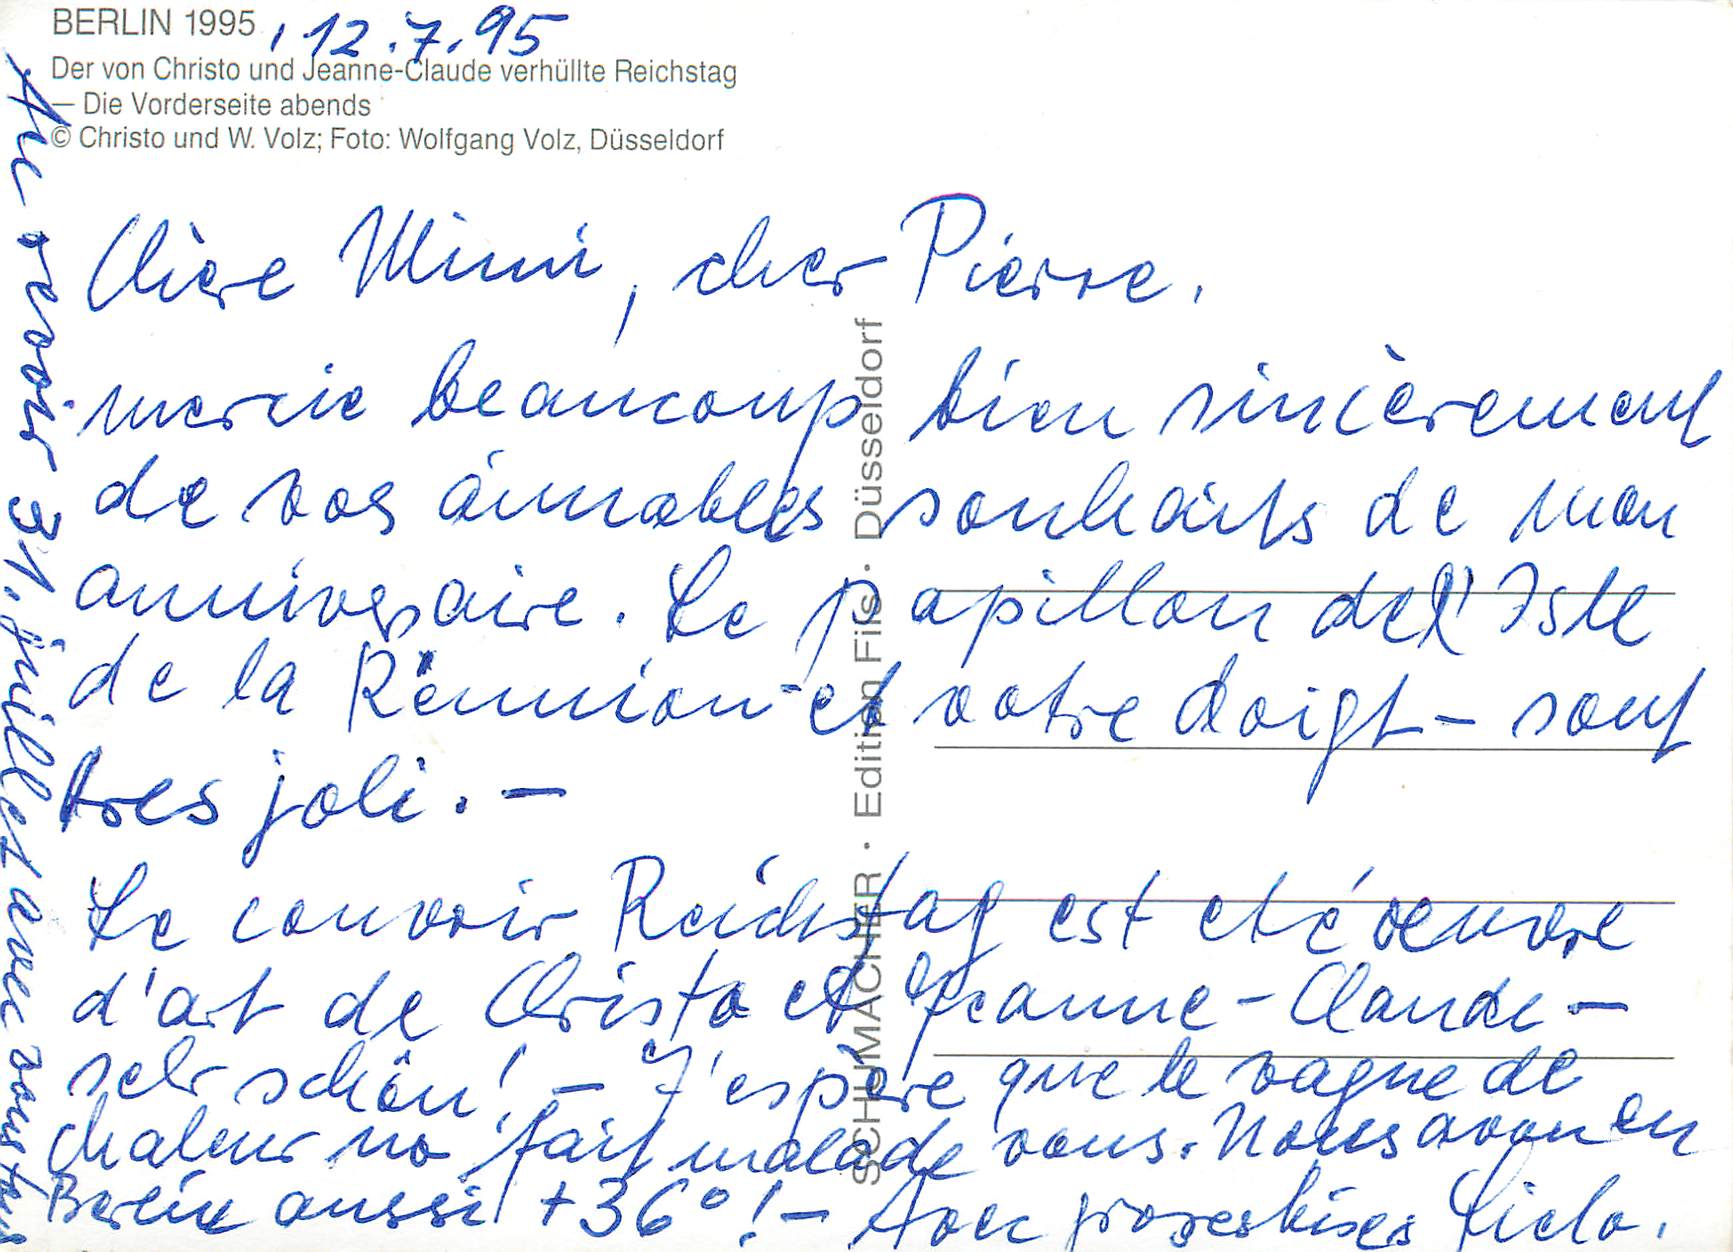 BERLIN 1995, 12.7.95
Der von Christo und Jeanne-Claude verhüllte Reichstag
– Die Vorderseite abends
© Christo und W. Volz; Foto: Wolfgang Volz, Düsseldorf
Chère Mimi, cher Pierre,
mercie beaucoup bien sincèrement
de vos aimables souhaits de mon
anniversaire. Le papillon de l'Isle
de la Réunion - et votre doigt - sont
tres joli. –
Le couvoir Reichstag est eté oeuvre
d'art de Christo et Jeanne-Claude –
sehr schön! – J'espère que le vague de
chaleur no fait malade vous. Nous avon en
Berlin aussi +36°! – Avec grosesbises Liclo.
Au revoir 31. juillet avec vous tous
SCHUMACHER · Edition Fils · Düsseldorf